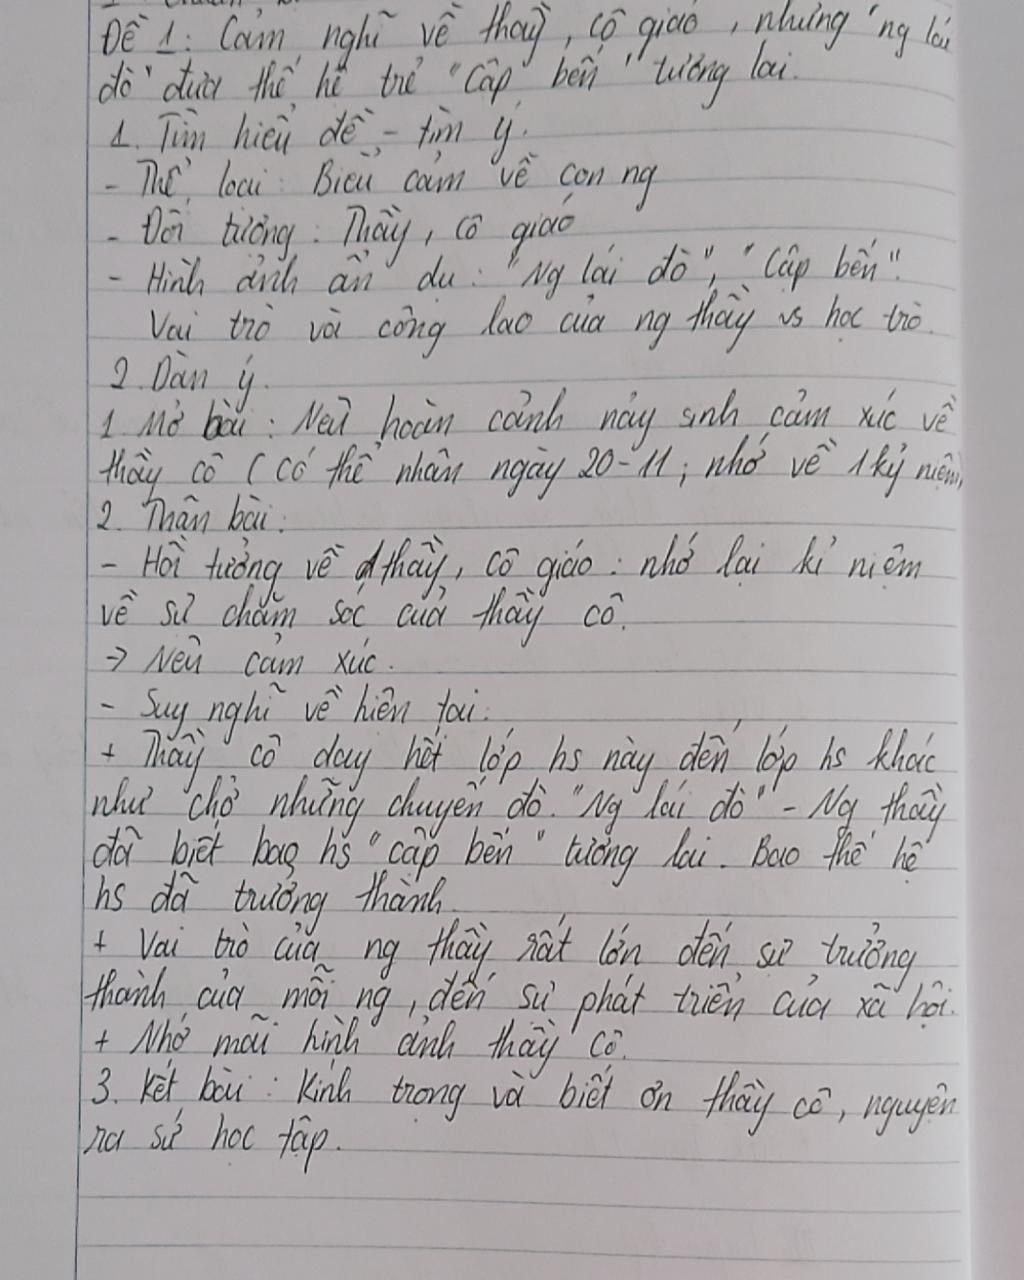 Đề 1: Cảm nghĩ về thầy, cô giáo, những "ng lái
đò" đưa thế hệ trẻ "Cập bến" tương lai.
1. Tìm hiểu đề - tìm ý.
- Thể loại: Biểu cảm về con ng
- Đối tượng: Thầy, cô giáo
- Hình ảnh ẩn dụ: "Ng lái đò", "Cập bến".
Vai trò và công lao của ng thầy vs học trò.
2. Dàn ý.
1. Mở bài: Nêu hoàn cảnh nảy sinh cảm xúc về
thầy cô (Có thể nhân ngày 20-11; nhớ về 1 kỷ niệm)
2. Thân bài:
- Hồi tưởng về thầy, cô giáo: nhớ lại kỉ niệm
về sự chăm sóc của thầy cô.
→ Nêu cảm xúc.
- Suy nghĩ về hiện tại:
+ Thầy cô dạy hết lớp hs này đến lớp hs khác
như chở những chuyến đò. "Ng lái đò" - Ng thầy
đã biết bao hs "cập bến" tương lai. Bao thế hệ
hs đã trưởng thành.
+ Vai trò của ng thầy rất lớn đến sự trưởng
thành của mỗi ng, đến sự phát triển của xã hội.
+ Nhớ mãi hình ảnh thầy cô.
3. Kết bài: Kính trọng và biết ơn thầy cô, nguyện
ra sứ học tập.